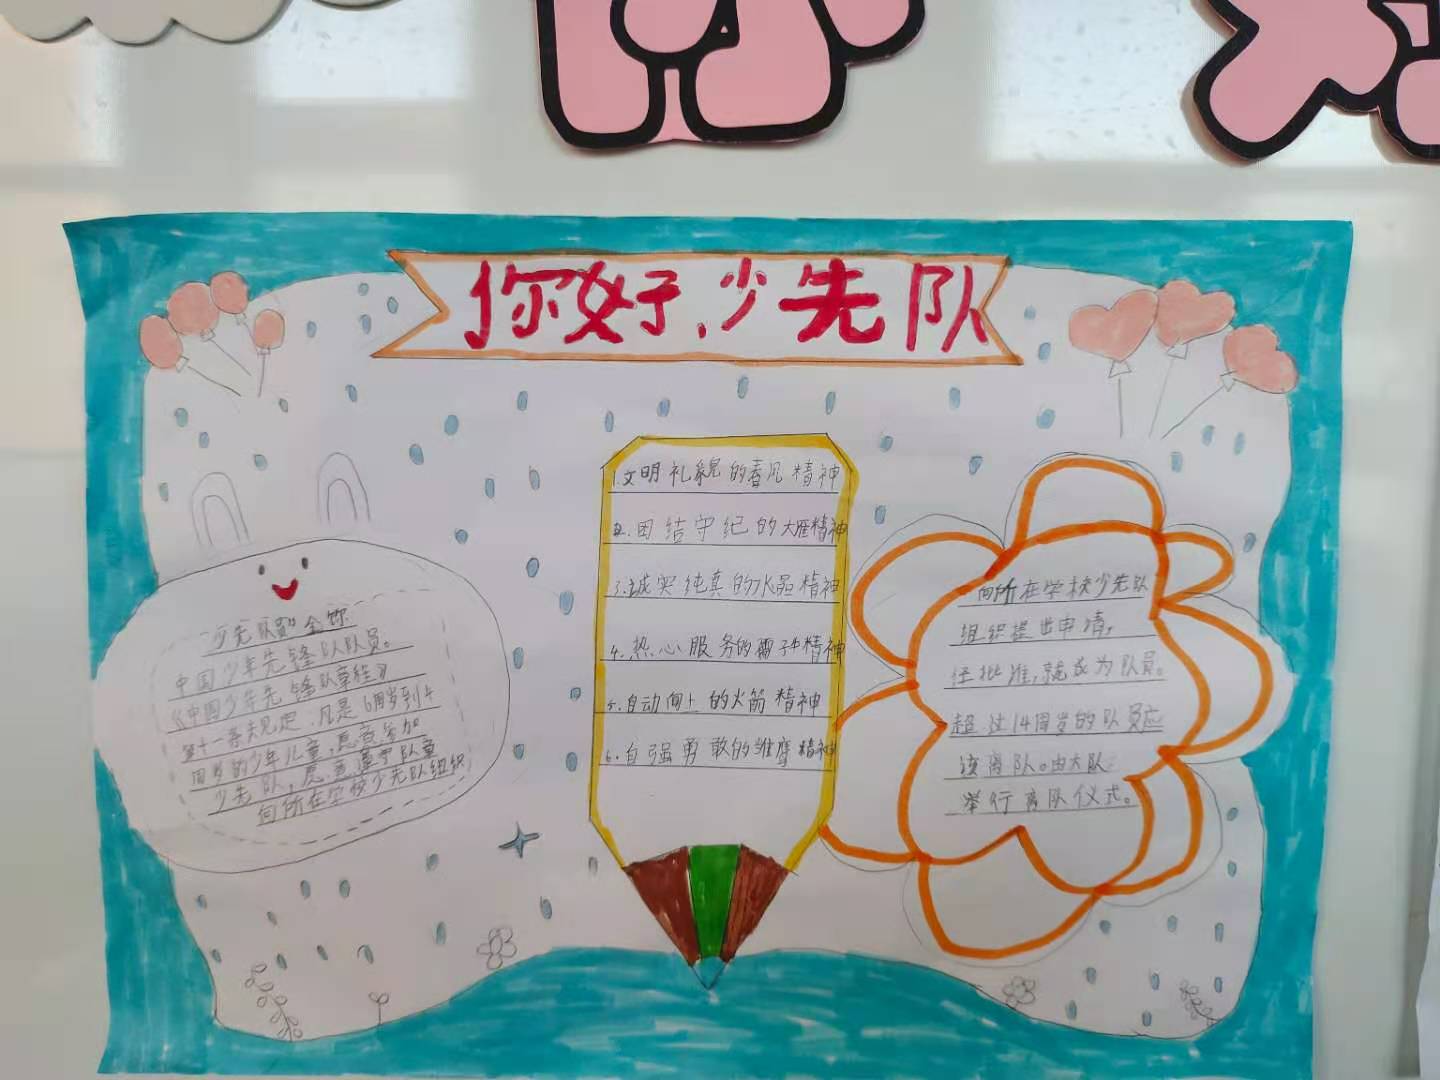 你好,少先队
"少先队员"全称
中国少年先锋队队员。
《中国少年先锋队章程》
第十一条规定:凡是6周岁到14
周岁的少年儿童,愿意参加
少先队,愿意遵守队章
向所在学校少先队组织
1.文明礼貌的春风精神
2.团结守纪的大雁精神
3.诚实纯真的水晶精神
4.热心服务的雷子牛精神
5.自动向上的火箭精神
6.自强勇敢的雏鹰精神
向所在学校少先队
组织提出申请,
经批准,就成为队员。
超过14周岁的队员应
该离队。由大队
举行离队仪式。